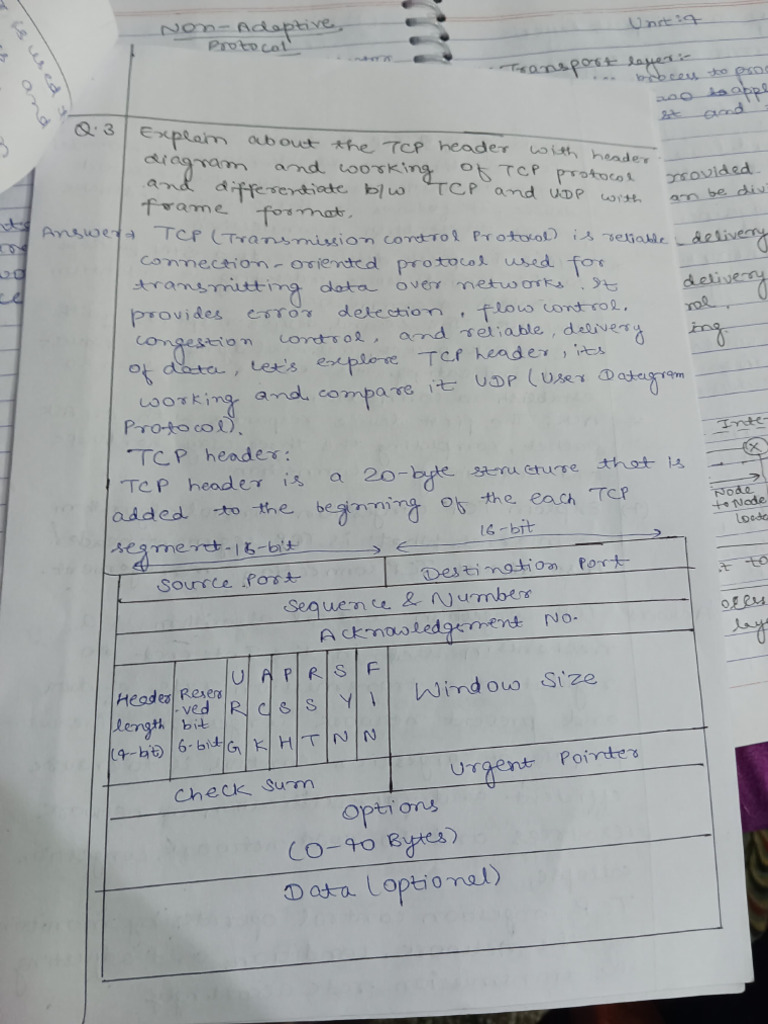 Non-Adaptive
Protocol
Unit:4
Transport layer:-
process to proc
st and
rovided.
an be divi
delivery
delivery
rol,
ing.
Inte-
Node
to Node
is used
and
Q.3 Explain about the TCP header with header
diagram and working of TCP protocol
and differentiate b/w TCP and UDP with
frame format.
Answer→ TCP (Transmission control Protocol) is reliable
connection-oriented protocol used for
transmitting data over networks. It
provides error detection, flow control,
congestion control, and reliable, delivery
of data, Let's explore TCP header, its
working and compare it UDP (User Datagram
Protocol).
TCP header:
TCP header is a 20-byte structure that is
added to the beginning of the each TCP
segment-16-bit 16-bit
Source Port Destination Port
Sequence & Number
Acknowledgement No.
Header length (4-bit) Reser-ved bit 6-bit URG ACK PSH RST SYN FIN Window Size
Check Sum Urgent Pointer
Options
(0-40 Bytes)
Data (optional)